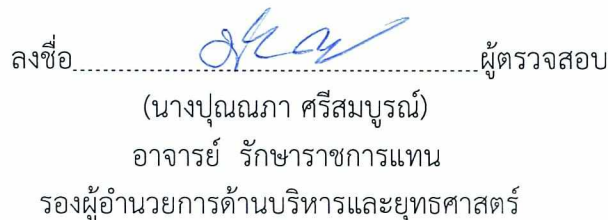 ลงชื่อ........................................................ผู้ตรวจสอบ
(นางปุณณภา ศรีสมบูรณ์)
อาจารย์ รักษาราชการแทน
รองผู้อำนวยการด้านบริหารและยุทธศาสตร์